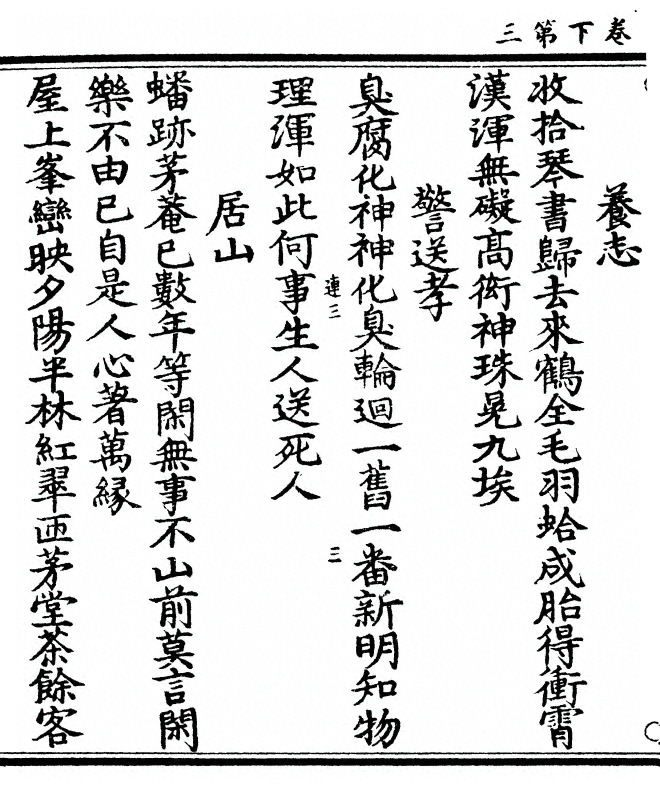 卷下第三
養志
收拾琴書歸去來鶴全毛羽蛤成胎得衝霄
漢渾無礙高衒神珠晃九埃
警送孝
臭腐化神神化臭輪迴一舊一番新明知物
連三
三
理渾如此何事生人送死人
居山
蟠跡茅菴已數年等閑無事不山前莫言閑
樂不由已自是人心著萬緣
屋上峯巒映夕陽半林紅翠匝茅堂茶餘客